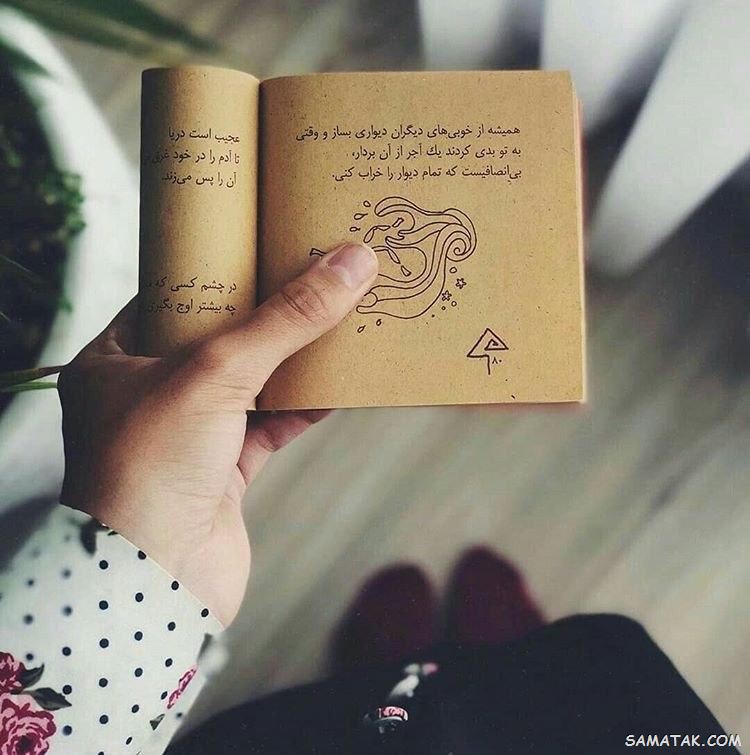 همیشه از خوبی‌های دیگران دیواری بساز و وقتی
به تو بدی کردند یك آجر از آن بردار،
بی‌انصافیست که تمام دیوار را خراب کنی.
۸۰
عجیب است دریا
تا آدم را در خود غرق
آن را پس می‌زند.
در چشم کسی که
چه بیشتر اوج بگیری
SAMATAK.COM